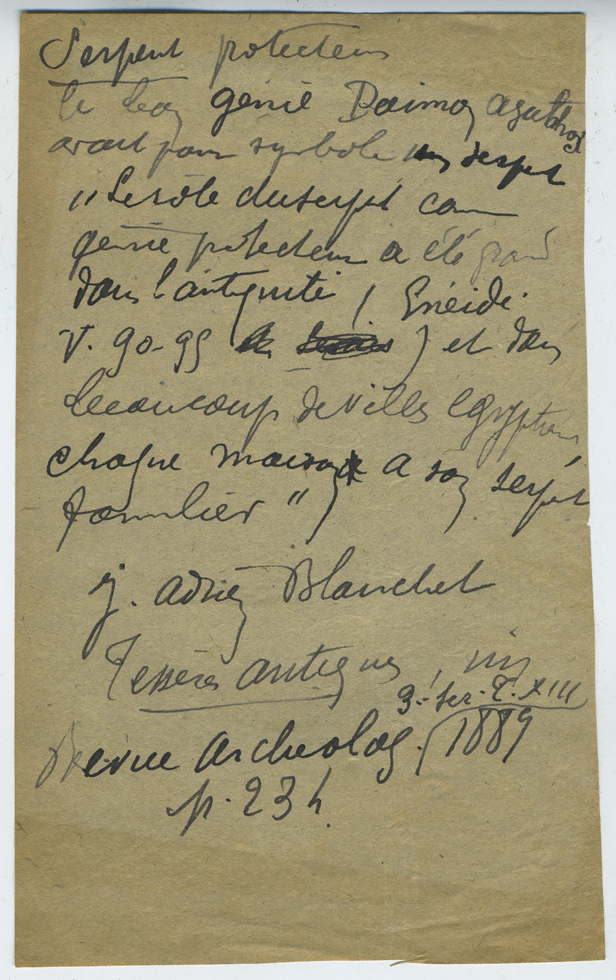 Serpent protecteur
le bon génie Daimon agathos
avait pour symbole un serpent
"Le rôle du serpent com
génie protecteur a été grand
dans l'antiquité ( Enéide.
V. 90-95 ) et dans
beaucoup de villes egyptien
chaque maison a son serpent
familier")
J. Adrien Blanchet
Tessères antiques, in
3.e ser. T. XIII
Revue Archeolog. 1889
p. 234